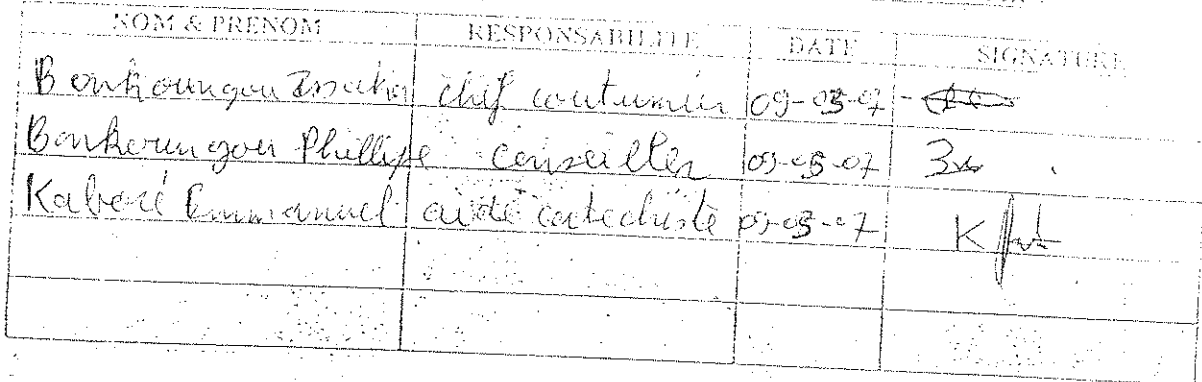 NOM & PRENOM RESPONSABILITE DATE SIGNATURE
Bonkoungou chef coutumier 09-03-07
Bonkoungou Phillipe conseiller 09-03-07
Kaboré Emmanuel aide catechiste 09-03-07 K